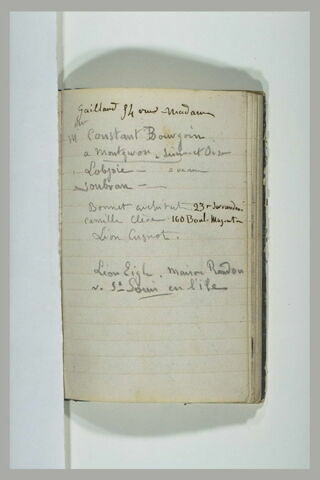 Gaillard 54 rue Madame
M Constant Bourgoin
a Montgeron Seine et Oise
Lobjoie
Soubran
Bonnet architect 23 r
Camille Cléré 160 Boul. Magenta
Léon Cugnot.
Léon Eigl, Maison Rondon
r. St Louis en l'île